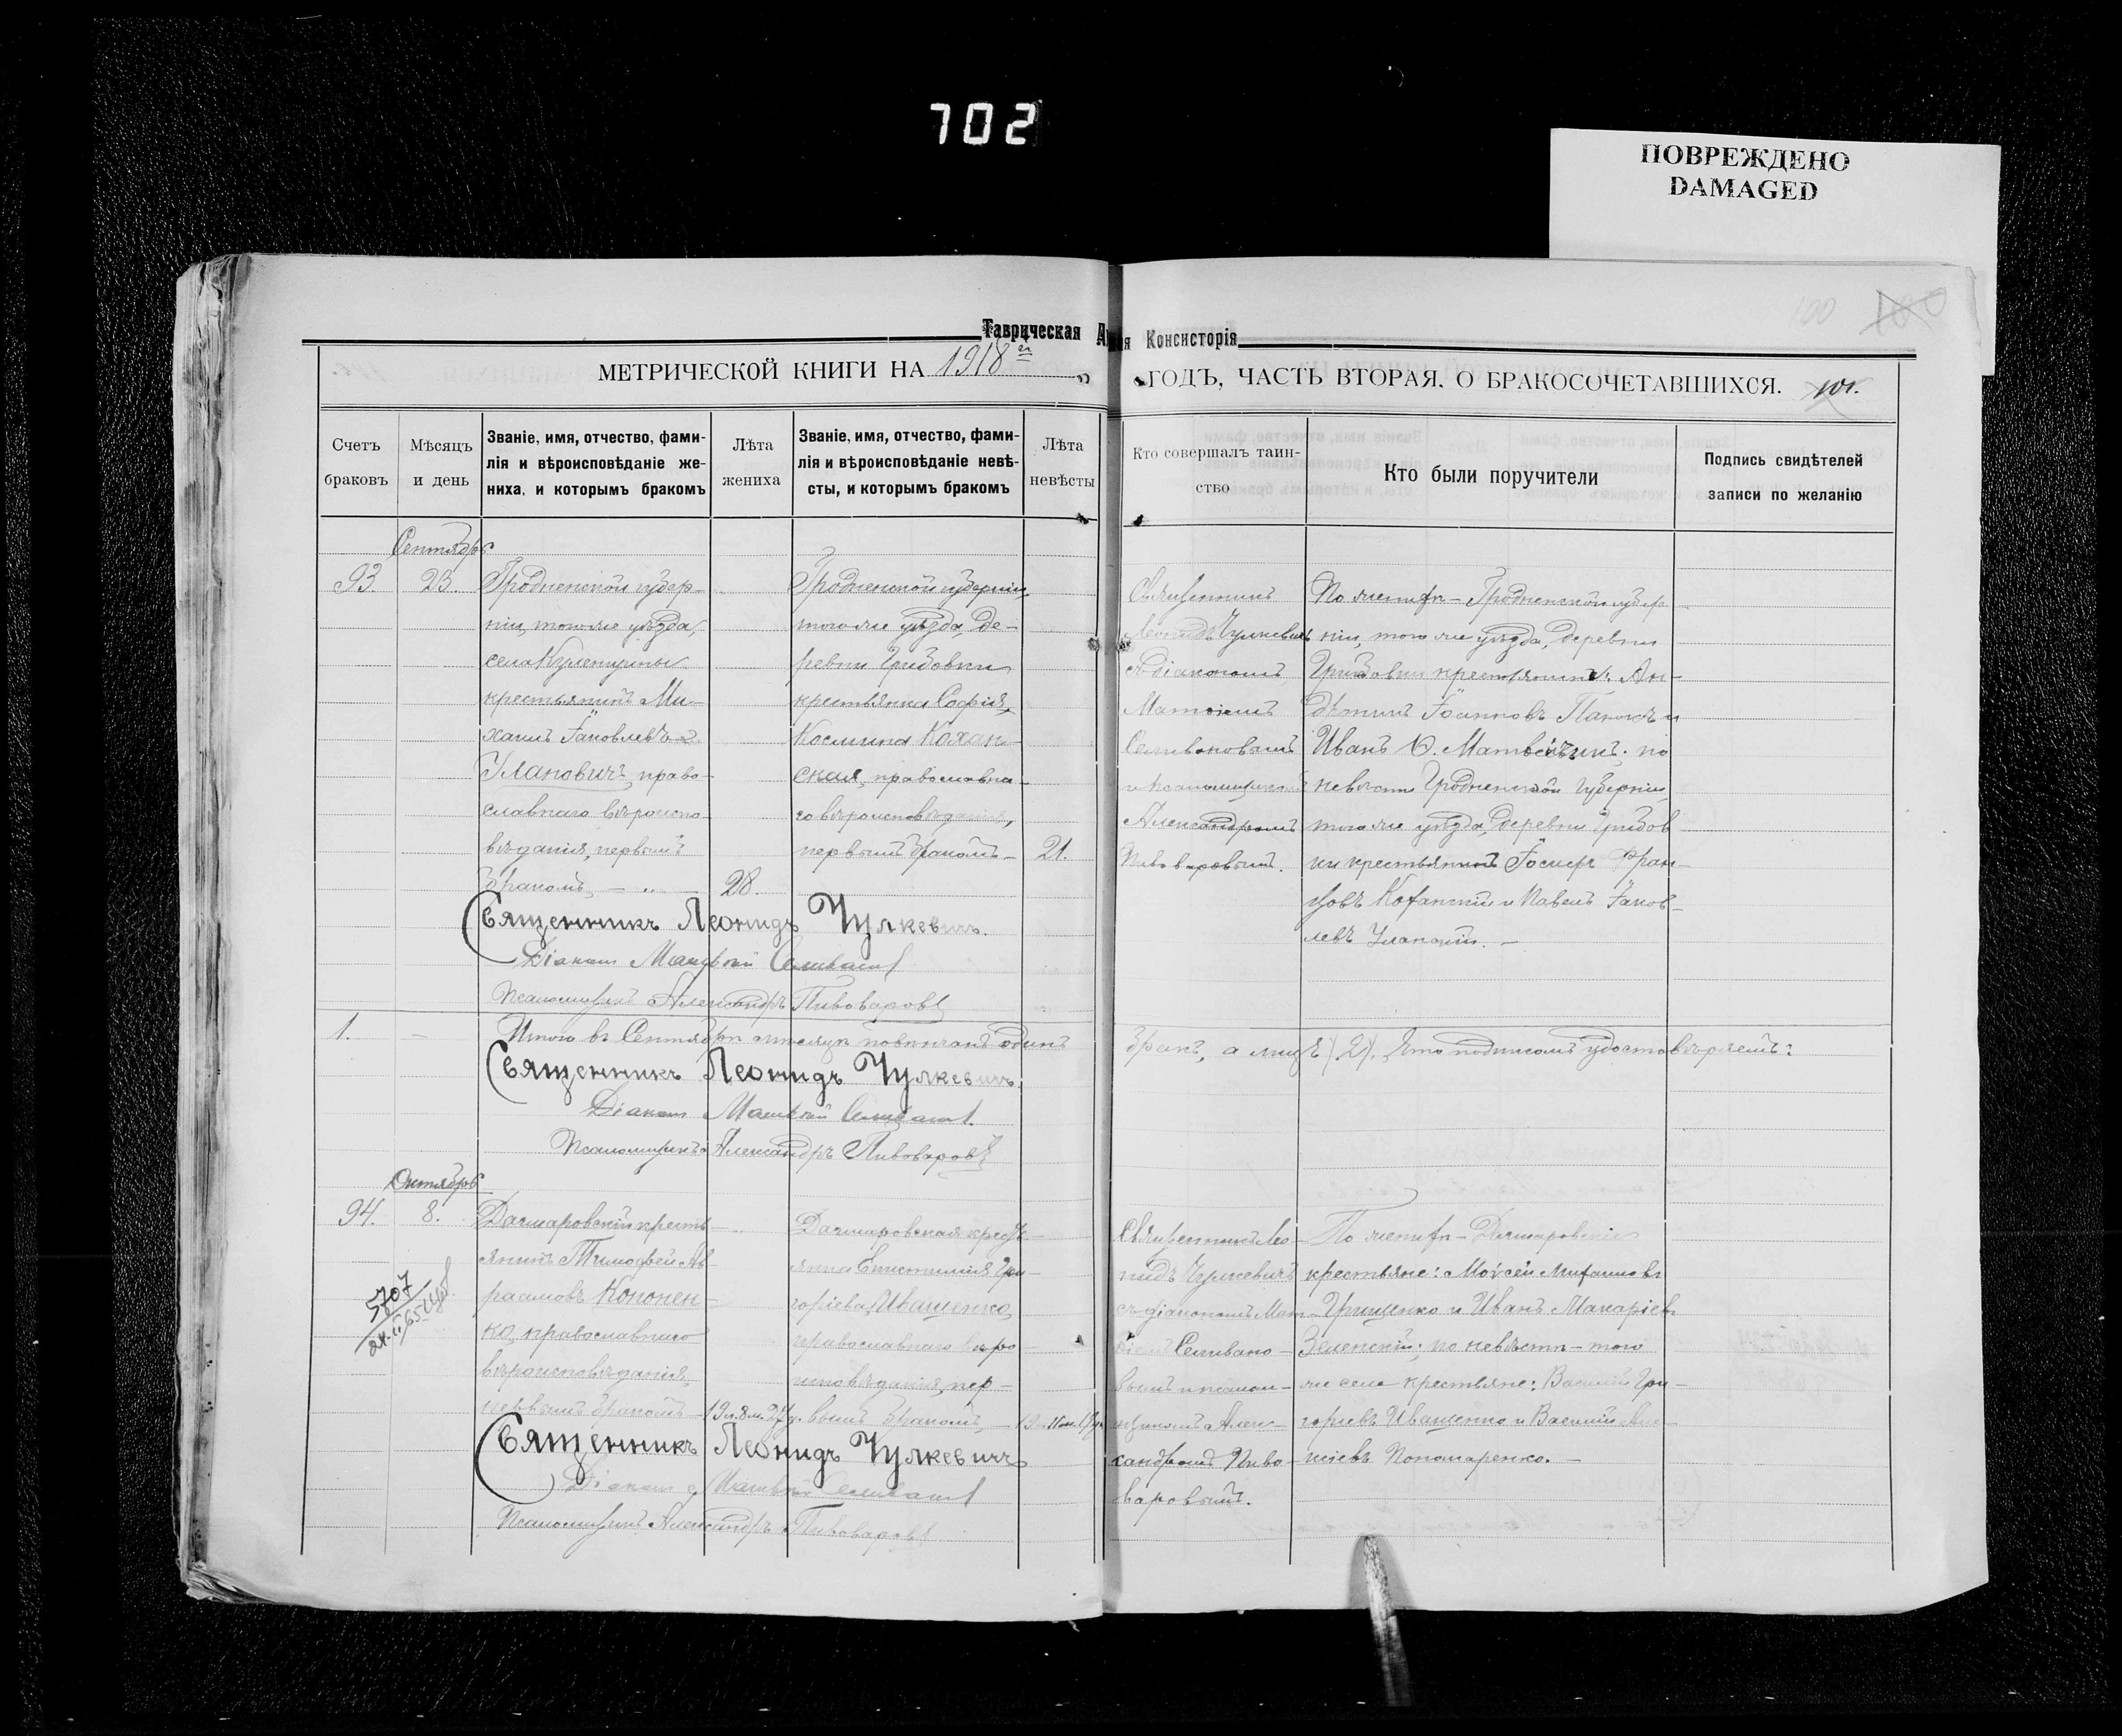 702
ПОВРЕЖДЕНО
DAMAGED
100
Таврическая Консисторія
МЕТРИЧЕСКОЙ КНИГИ НА 1918 ГОДЪ, ЧАСТЬ ВТОРАЯ, О БРАКОСОЧЕТАВШИХСЯ. 101.
Счетъ браковъ
Мѣсяцъ и день
Званіе, имя, отчество, фами-
лія и вѣроисповѣданіе же-
ниха, и которымъ бракомъ
Лѣта жениха
Званіе, имя, отчество, фами-
лія и вѣроисповѣданіе невѣ-
сты, и которымъ бракомъ
Лѣта невѣсты
Кто совершалъ таин-
ство
Кто были поручители
Подпись свидѣтелей
записи по желанію
Сентябрь
93.
23.
Гродненской губер-
ніи, того же уѣзда,
села
крестьянинъ Ми-
хаилъ Іаковлевъ
Улановичъ, право-
славнаго вѣроиспо-
вѣданія, первымъ
бракомъ — „ —
28.
Гродненской губерніи,
того же уѣзда, де-
ревни Грибовки
крестьянка Софія
Космина Кохан-
ская, православна-
го вѣроисповѣданія,
первымъ бракомъ —
21.
Священникъ
Леонидъ Чулкевичъ
съ діакономъ
Матѳіемъ
Селивановымъ
и псаломщикомъ
Александромъ
Пивоваровымъ.
По женихѣ — Гродненской губер-
ніи, того же уѣзда, деревни
Грибовки крестьянинъ:
Іоанновъ
Иванъ
невѣстѣ Гродненской губерніи,
того же уѣзда, деревни Грибов-
ки крестьянинъ Іосифъ Фран-
цовъ Коханскій и Павелъ Іаков-
левъ
Священникъ Леонидъ Чулкевичъ.
Діаконъ Матѳій Селивановъ
Псаломщикъ Александръ Пивоваровъ
1.
—
Итого въ Сентябрѣ мѣсяцѣ повѣнчанъ одинъ
бракъ, а лицъ (2). Что подписомъ удостовѣряемъ:
Священникъ Леонидъ Чулкевичъ.
Діаконъ Матѳій Селивановъ.
Псаломщикъ Александръ Пивоваровъ
Октябрь
94.
8.
5707
Дачмаровскій кресть-
янинъ Тимофей Ав-
раамовъ Кононен-
ко, православнаго
вѣроисповѣданія,
первымъ бракомъ —
19 л. 8 м. 27 д.
Дачмаровская кресть-
янка Евстимія Гри-
горіева Иващенко,
православнаго вѣро-
исповѣданія, пер-
вымъ бракомъ, —
Священникъ Лео-
нидъ Чулкевичъ
съ діакономъ Мат-
ѳіемъ Селивано-
вымъ и псалом-
щикомъ Алек-
сандромъ Пиво-
варовымъ.
По женихѣ — Дачмаровскіе
крестьяне: Моѵсей Михаиловъ
Грищенко и Иванъ Макаріевъ
Зеленскій; по невѣстѣ — того
же села крестьяне: Василій Гри-
горіевъ Иващенко и Василій
Пономаренко. —
Священникъ Леонидъ Чулкевичъ
Діаконъ Матѳій Селивановъ
Псаломщикъ Александръ Пивоваровъ